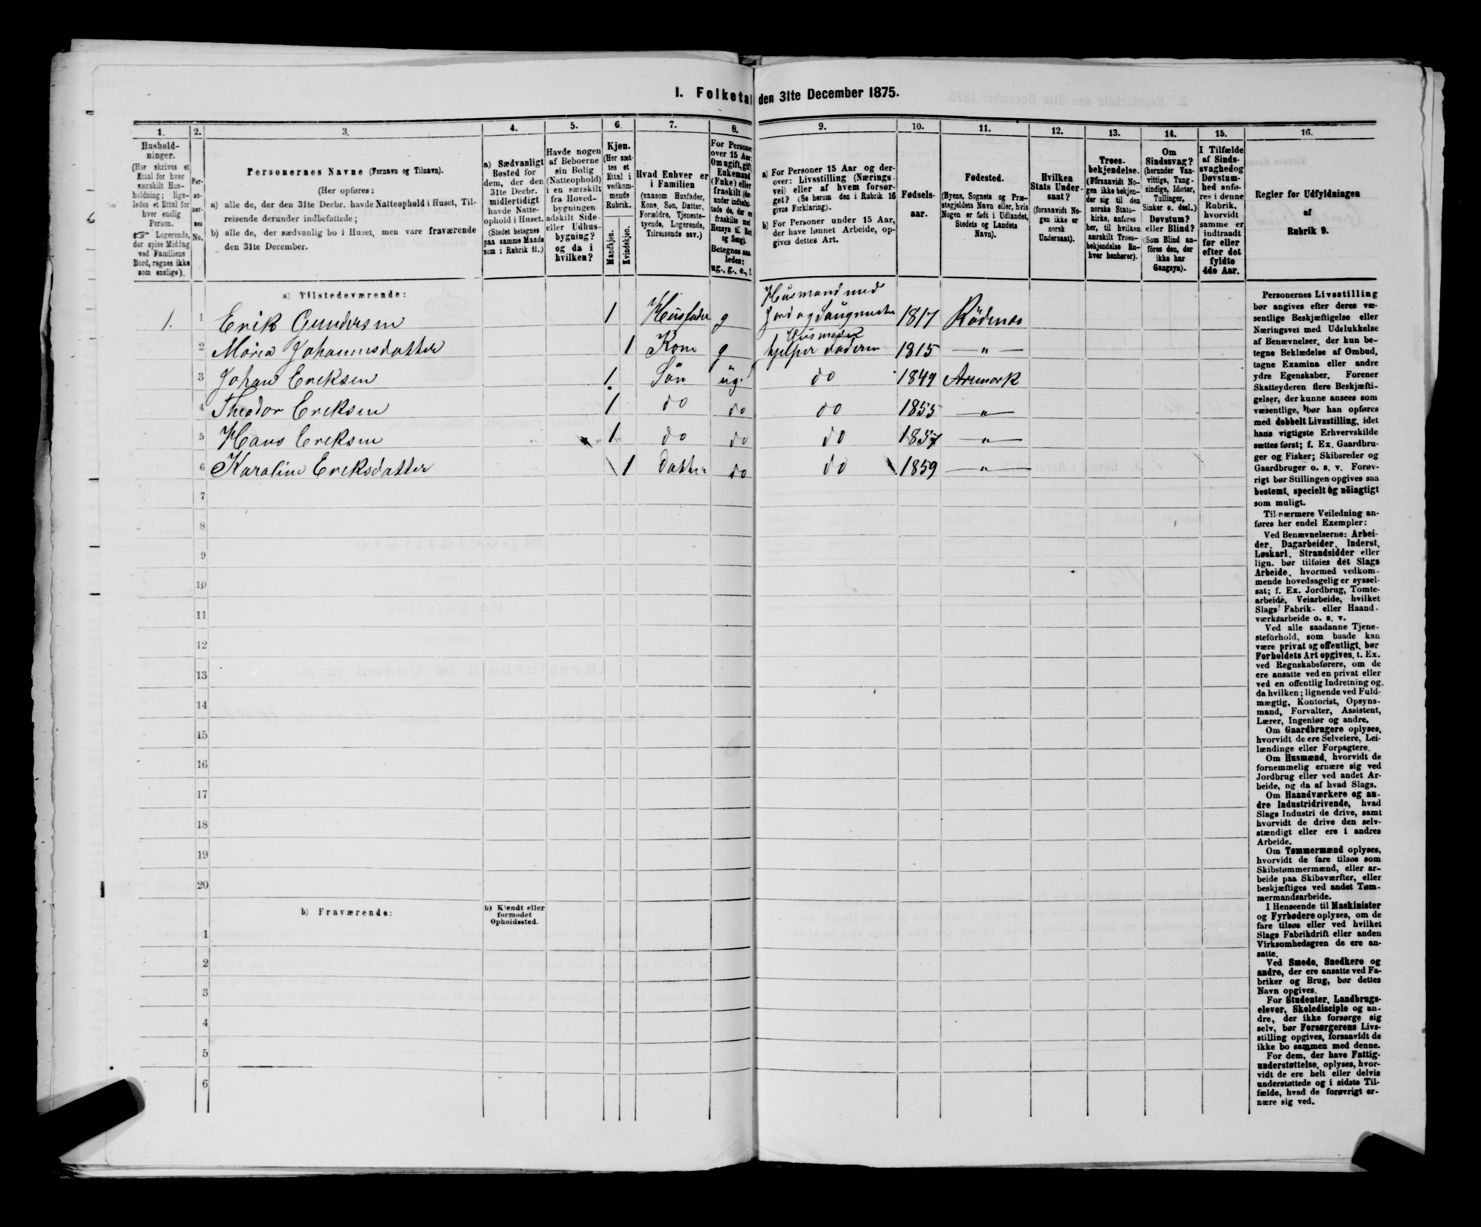 I. Folketal den 31te December 1875.
1. 2. 3. 4. 5. 6. 7. 8. 9. 10. 11. 12. 13. 14. 15. 16.
Hushold-
ninger.
(Her skrives et
Ettal for hver
særskilt Hus-
holdning; lige-
ledes et Ettal for
hver enslig
Person.
☞ Logerende,
der spise Middag
ved Familiens
Bord, regnes ikke
som enslige).
Per-
so-
ner-
nes
No.
Personernes Navne (Fornavn og Tilnavn).
(Her opføres:
a) alle de, der den 31te Decbr. havde Natteophold i Huset, Til-
reisende derunder indbefattede;
b) alle de, der sædvanlig bo i Huset, men vare fraværende
den 31te December.
a) Sædvanligt
Bosted for
dem, der den
31te Decbr.
midlertidigt
havde Natte-
ophold i Huset.
(Stedet betegnes
paa samme Maade
som i Rubrik 11.)
Havde nogen
af Beboerne
sin Bolig
(Natteophold)
i en særskilt
fra Hoved-
bygningen
adskilt Side-
eller Udhus-
bygning?
og da i
hvilken?
Kjøn.
(Her sæt-
tes et
Ettal i
vedkom-
mende
Rubrik.
Mandkjøn.
Kvindekjøn.
Hvad Enhver er
i Familien
(saasom Husfader,
Kone, Søn, Datter,
Forældre, Tjeneste-
tyende, Logerende,
Tilreisende osv.)
For Personer
over 15 Aar
Om ugift, gift
Enkemand
(Enke) eller
fraskilt
Betegnes saa
ledes:
ug., g., e., f.
a) For Personer 15 Aar og der-
over: Livsstilling (Nærings-
vei) eller af hvem forsør-
get? (Se herom den i Rubrik 16
givne Forklaring).
b) For Personer under 15 Aar,
der have lønnet Arbeide, op-
gives dettes Art.
Fødsels-
aar.
Fødested.
(Byens, Sognets og Præ-
stegjeldets Navn eller, hvis
Nogen er født i Udlandet,
Stedets og Landets
Navn).
Hvilken
Stats Under-
saat?
(forsaavidt No-
gen ikke er
norsk
Undersaat).
Troes-
bekjendelse.
(Forsaavidt No-
gen ikke bekjen-
der sig til den
norske Stats-
kirke, anføres
her, til hvilken
særskilt Troes-
bekjendelse En-
hver henhører).
Om
Sindssvag?
(herunder Van-
vittige, Tung-
sindige, Idioter,
Tullinger,
Sinker o. desl.)
Døvstum?
eller Blind?
(Som Blind an-
føres den, der
ikke har
Gangsyn).
I Tilfælde
af Sinds-
svaghed og
Døvstum-
hed anfø-
res i denne
Rubrik,
hvorvidt
samme er
indtraadt
før eller
efter det
fyldte
4de Aar.
Regler for Udfyldningen
af
Rubrik 9.
a) Tilstedeværende:
1. 1 Erik Gundersen 1 Husfader g Husmand med Jord og Saugmester 1817 Rødenæs
2 Maren Johannesdatter 1 Kone g 1815 — „ —
3 Johan Eriksen 1 Søn ug. hjelper Faderen do 1849 Aremark
4 Theodor Eriksen 1 do do do 1855 — „ —
5 Hans Eriksen 1 do do do 1857 — „ —
6 Karoline Eriksdatter 1 Datter do do 1859 — „ —
7
8
9
10
11
12
13
14
15
16
17
18
19
20
b) Fraværende:
b) Kjendt eller
formodet
Opholdssted.
1
2
3
4
5
6
Personernes Livsstilling
bør angives efter deres væ-
sentlige Beskjæftigelse eller
Næringsvei med Udelukkelse
af Benævnelser, der kun be-
tegne Beklædelse af Ombud,
tagne Examina eller andre
ydre Egenskaber. Forener
Skatteyderen flere Beskjæfti-
gelser, der kunne ansees som
væsentlige, bør han opføres
med dobbelt Livsstilling, idet
hans vigtigste Erhvervskilde
sættes først; f. Ex. Gaardbru-
ger og Fisker; Skibsreder og
Gaardbruger o. s. v. Forøv-
rigt bør Stillingen opgives saa
bestemt, specielt og nøiagtigt
som muligt.
Til nærmere Veiledning an-
føres her endel Exempler:
Ved Benævnelserne: Arbei-
der, Dagarbeider, Inderst,
Løskarl, Strandsidder eller
lign. bør tilføies det Slags
Arbeide, hvormed vedkom-
mende hovedsagelig er syssel-
sat; f. Ex. Jordbrug, Tomte-
arbeide, Veiarbeide, hvilket
Slags Fabrik- eller Haand-
værksarbeide o. s. v.
Ved alle saadanne Tjene-
steforhold, som baade kan
være privat og offentligt, bør
Forholdets Art opgives, t. Ex.
ved Regnskabsførere, om de
ere ansatte ved en privat eller
ved en offentlig Indretning og
da hvilken; lignende ved Fuld-
mægtig, Kontorist, Opsyns-
mand, Forvalter, Assistent,
Lærer, Ingeniør og andre.
Om Gaardbrugere oplyses,
hvorvidt de ere Selveiere, Lei-
lændinge eller Forpagtere.
Om Husmænd, hvorvidt de
fornemmelig ernære sig ved
Jordbrug eller ved andet Ar-
beide, og da af hvad Slags.
Om Haandværkere og an-
dre Industridrivende, hvad
Slags Industri de drive, samt
hvorvidt de drive den selv-
stændigt eller ere i andres
Arbeide.
Om Tømmermænd oplyses,
hvorvidt de fare tilsøs som
Skibstømmermænd, eller ar-
beide paa Skibsværfter, eller
beskjæftiges ved andet Tøm-
mermandsarbeide.
I Henseende til Maskinister
og Fyrbødere oplyses, om de
fare tilsøs eller ved hvilket
Slags Fabrikdrift eller anden
Virksomhedsgren de ere an-
satte.
Ved Smede, Snedkere og
andre, der ere ansatte ved Fa-
briker og Brug, bør dettes
Navn opgives.
For Studenter, Landbrugs-
elever, Skoledisciple og an-
dre, der ikke forsørge sig
selv, bør Forsørgerens Livs-
stilling opgives, forsaavidt de
ikke bo sammen med denne.
For dem, der have Fattig-
understøttelse, oplyses, hvor-
vidt de ere helt eller delvis
understøttede og i sidste Til-
fælde, hvad de forøvrigt er-
nære sig ved.